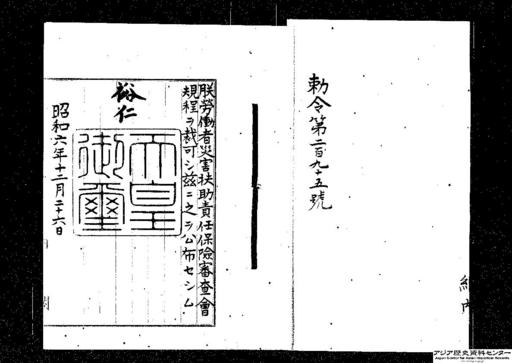 勅令第二百九十五號
朕勞働者災害扶助責任保險審査會
規程ヲ裁可シ玆ニ之ヲ公布セシム
裕仁
天皇
御璽
昭和六年十二月二十六日
アジア歴史資料センター
Japan Center for Asian Historical Records